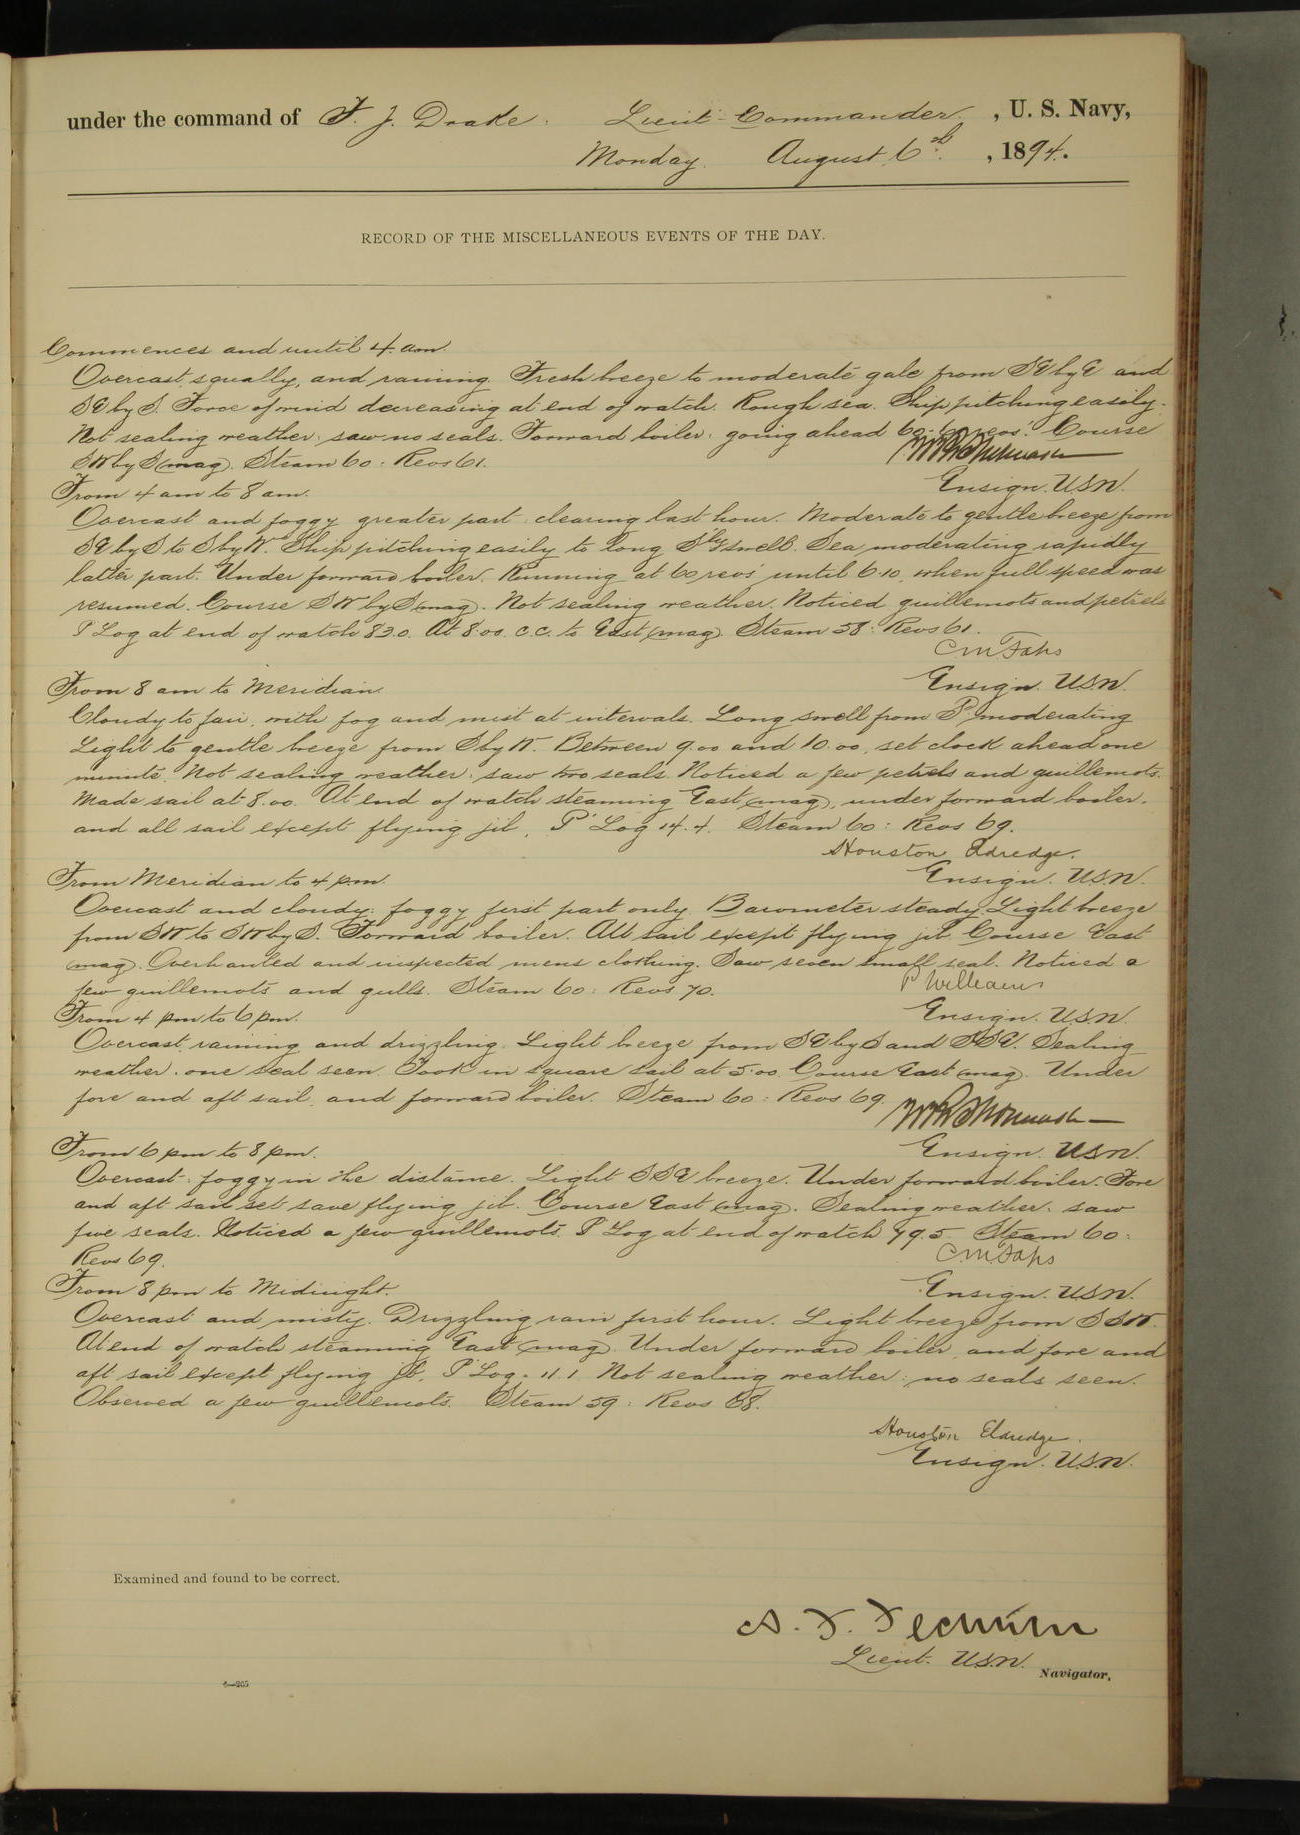 under the command of F. J. Drake. Lieut-Commander. , U. S. Navy,
Monday. August 6th. , 1894.
RECORD OF THE MISCELLANEOUS EVENTS OF THE DAY.
Commences and until 4 am.
Overcast, squally, and raining. Fresh breeze to moderate gale from SE by E and
SE by S. Force of wind decreasing at end of watch. Rough sea. Ship pitching easily.
Not sealing weather: saw no seals. Forward boiler: going ahead revs'. Course
SW by S (mag). Steam 60: Revs 61.
Ensign. U.S.N.
From 4 am to 8 am.
Overcast and foggy greater part: clearing last hour. Moderate to gentle breeze from
SE by S to S by W. Ship pitching easily to long S'ly swell. Sea moderating rapidly
latter part. Under forward boiler. Running at 60 revs' until 6.10, when full speed was
resumed. Course SW by S (mag). Not sealing weather. Noticed guillemots and petrels
P Log at end of watch 83.0. At 8.00. c.c. to East (mag). Steam 58: Revs 61.
C M Fahs
Ensign. U.S.N.
From 8 am to Meridian.
Cloudy to fair, with fog and mist at intervals. Long swell from S'd, moderating
Light to gentle breeze from S by W. Between 9.00 and 10.00, set clock ahead one
minute. Not sealing weather: saw two seals. Noticed a few petrels and guillemots.
Made sail at 8.00. At end of watch steaming East (mag), under forward boiler.
and all sail except flying jib. P' Log 14.4. Steam 60: Revs 69.
Houston Eldredge.
Ensign. U.S.N.
From Meridian to 4 pm.
Overcast and cloudy: foggy first part only. Barometer steady. Light breeze
from SW to SW by S. Forward boiler. All sail except flying jib. Course East
(mag). Overhauled and inspected mens clothing. Saw seven small seal. Noticed a
few guillemots and gulls. Steam 60: Revs 70.
P Williams
From 4 pm to 6 pm.
Ensign. U.S.N.
Overcast, raining and drizzling. Light breeze from SE by S and SSE. Sealing
weather: one seal seen. Took in square sail at 5.00. Course East (mag). Under
fore and aft sail, and forward boiler. Steam 60: Revs 69.
From 6 pm to 8 pm.
Ensign. U.S.N.
Overcast: foggy in the distance. Light SSE breeze. Under forward boiler. Fore
and aft sail set save flying jib. Course East (mag). Sealing weather: saw
five seals. Noticed a few guillemots. P Log at end of watch 79.5. Steam 60:
Revs 69.
C. M. Fahs
From 8 pm to Midnight.
Ensign. U.S.N.
Overcast and misty. Drizzling rain first hour. Light breeze from SSW.
At end of watch steaming East (mag). Under forward boiler, and fore and
aft sail except flying jib. P' Log. 11.1 Not sealing weather: no seals seen.
Observed a few guillemots. Steam 59: Revs 68.
Houston Eldredge.
Ensign. U.S.N.
Examined and found to be correct.
Lieut. U.S.N. Navigator.